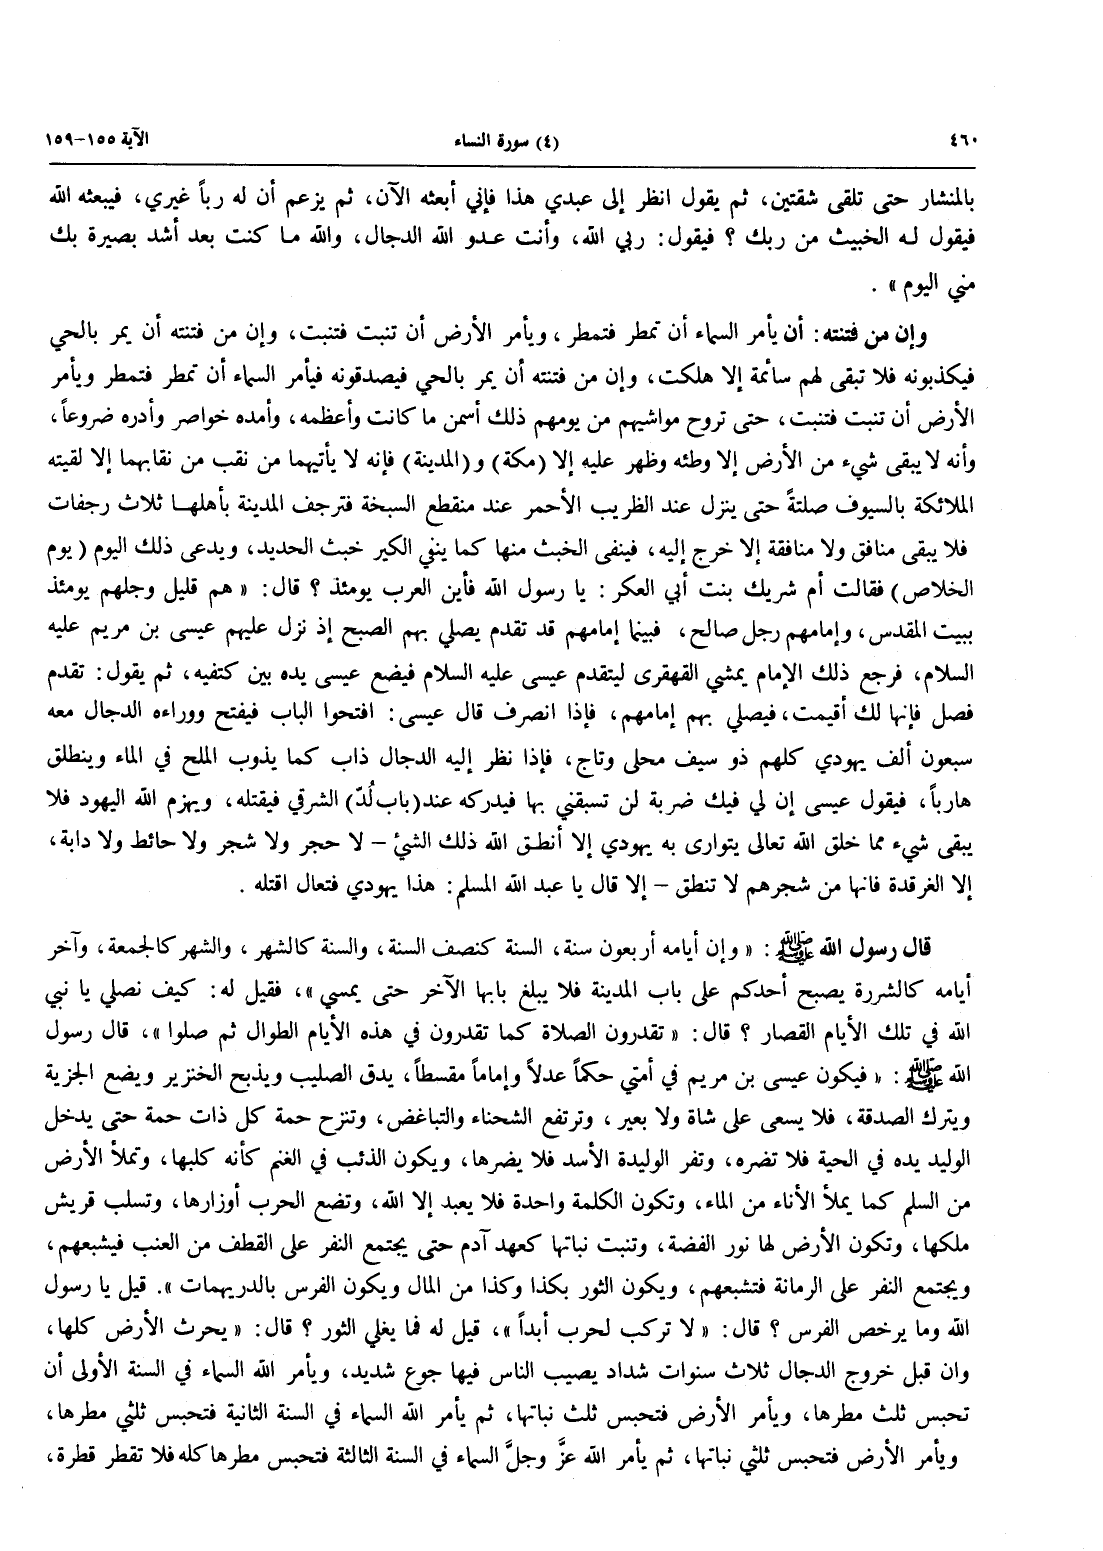 ٤٦٠ (٤) سورة النساء الآية ١٥٥-١٥٩
بالمنشار حتى تلقى شقتين، ثم يقول انظر إلى عبدي هذا فإني أبعثه الآن، ثم يزعم أن له رباً غيري، فيبعثه الله
فيقول له الخبيث من ربك ؟ فيقول: ربي الله، وأنت عدو الله الدجال، والله ما كنت بعد أشد بصيرة بك
مني اليوم » .
وإن من فتنته: أن يأمر السماء أن تمطر فتمطر ، ويأمر الأرض أن تنبت فتنبت، وإن من فتنته أن يمر بالحي
فيكذبونه فلا تبقى لهم سائمة إلا هلكت، وإن من فتنته أن يمر بالحي فيصدقونه فيأمر السماء أن تمطر فتمطر ويأمر
الأرض أن تنبت فتنبت، حتى تروح مواشيهم من يومهم ذلك أسمن ما كانت وأعظمه، وأمده خواصر وأدره ضروعاً،
وأنه لا يبقى شيء من الأرض إلا وطئه وظهر عليه إلا (مكة) و(المدينة) فإنه لا يأتيهما من نقب من نقابهما إلا لقيته
الملائكة بالسيوف صلتةً حتى ينزل عند الظريب الأحمر عند منقطع السبخة فترجف المدينة بأهلها ثلاث رجفات
فلا يبقى منافق ولا منافقة إلا خرج إليه، فينفى الخبث منها كما ينفي الكير خبث الحديد، ويدعى ذلك اليوم ( يوم
الخلاص) فقالت أم شريك بنت أبي العكر : يا رسول الله فأين العرب يومئذ ؟ قال: « هم قليل وجلهم يومئذ
ببيت المقدس، وإمامهم رجل صالح، فبينما إمامهم قد تقدم يصلي بهم الصبح إذ نزل عليهم عيسى بن مريم عليه
السلام، فرجع ذلك الإمام يمشي القهقرى ليتقدم عيسى عليه السلام فيضع عيسى يده بين كتفيه، ثم يقول: تقدم
فصل فإنها لك أقيمت، فيصلي بهم إمامهم، فإذا انصرف قال عيسى: افتحوا الباب فيفتح ووراءه الدجال معه
سبعون ألف يهودي كلهم ذو سيف محلى وتاج، فإذا نظر إليه الدجال ذاب كما يذوب الملح في الماء وينطلق
هارباً، فيقول عيسى إن لي فيك ضربة لن تسبقني بها فيدركه عند(باب لُدّ) الشرقي فيقتله، ويهزم الله اليهود فلا
يبقى شيء مما خلق الله تعالى يتوارى به يهودي إلا أنطق الله ذلك الشيْ – لا حجر ولا شجر ولا حائط ولا دابة،
إلا الغرقدة فانها من شجرهم لا تنطق – إلا قال يا عبد الله المسلم: هذا يهودي فتعال اقتله .
قال رسول الله ﷺ : « وإن أيامه أربعون سنة، السنة كنصف السنة، والسنة كالشهر ، والشهر كالجمعة، وآخر
أيامه كالشررة يصبح أحدكم على باب المدينة فلا يبلغ بابها الآخر حتى يمسي »، فقيل له: كيف نصلي يا نبي
الله في تلك الأيام القصار ؟ قال: « تقدرون الصلاة كما تقدرون في هذه الأيام الطوال ثم صلوا »، قال رسول
الله ﷺ : « فيكون عيسى بن مريم في أمتي حكماً عدلاً وإماماً مقسطاً، يدق الصليب ويذبح الخنزير ويضع الجزية
ويترك الصدقة، فلا يسعى على شاة ولا بعير ، وترتفع الشحناء والتباغض، وتنزح حمة كل ذات حمة حتى يدخل
الوليد يده في الحية فلا تضره، وتفر الوليدة الأسد فلا يضرها، ويكون الذئب في الغنم كأنه كلبها، وتملأ الأرض
من السلم كما يملأ الأناء من الماء، وتكون الكلمة واحدة فلا يعبد إلا الله، وتضع الحرب أوزارها، وتسلب قريش
ملكها، وتكون الأرض لها نور الفضة، وتنبت نباتها كعهد آدم حتى يجتمع النفر على القطف من العنب فيشبعهم،
ويجتمع النفر على الرمانة فتشبعهم، ويكون الثور بكذا وكذا من المال ويكون الفرس بالدريهمات ». قيل يا رسول
الله وما يرخص الفرس ؟ قال: « لا تركب لحرب أبداً »، قيل له فما يغلي الثور ؟ قال: « يحرث الأرض كلها،
وان قبل خروج الدجال ثلاث سنوات شداد يصيب الناس فيها جوع شديد، ويأمر الله السماء في السنة الأولى أن
تحبس ثلث مطرها، ويأمر الأرض فتحبس ثلث نباتها، ثم يأمر الله السماء في السنة الثانية فتحبس ثلثي مطرها،
ويأمر الأرض فتحبس ثلثي نباتها، ثم يأمر الله عزَّ وجلَّ السماء في السنة الثالثة فتحبس مطرها كله فلا تقطر قطرة،